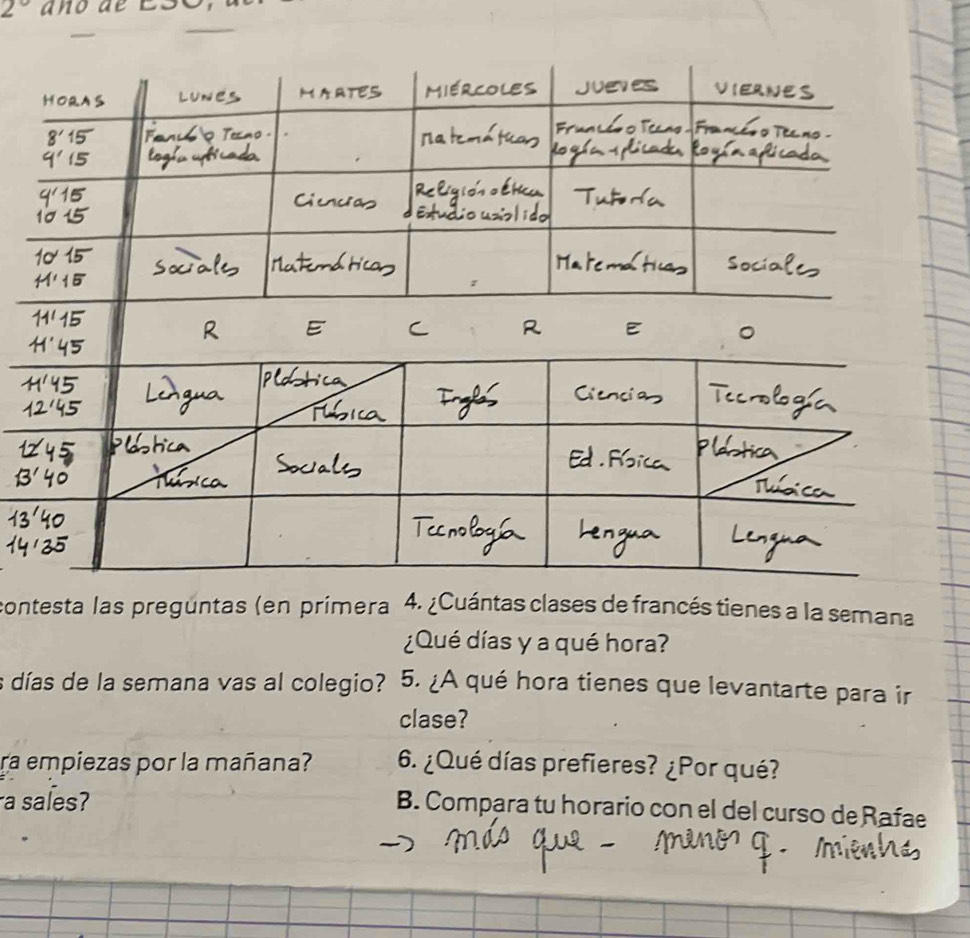 2º año de ESO,
HORAS LUNES MARTES MIÉRCOLES JUEVES VIERNES
8'15 Francés o Tecno- Matemáticas Francés o Tecno- Francés o Tecno-
9'15 logía aplicada logía aplicada logía aplicada
9'15 Ciencias Religión o ética Tutoría
10 15 o Estudio asistido
10 15 Sociales Matemáticas Matemáticas Sociales
11'15
11'15 R E C R E O
11'45
11'45 Lengua Plástica Inglés Ciencias Tecnología
12'45 Música
12'45 Plástica Sociales Ed. Física Plástica
13'40 Música Música
13'40 Tecnología Lengua Lengua
14'35
contesta las preguntas (en primera
s días de la semana vas al colegio?
ra empiezas por la mañana?
ra sales?
4. ¿Cuántas clases de francés tienes a la semana
¿Qué días y a qué hora?
5. ¿A qué hora tienes que levantarte para ir
clase?
6. ¿Qué días prefieres? ¿Por qué?
B. Compara tu horario con el del curso de Rafae
→ más que - menos q. mientras